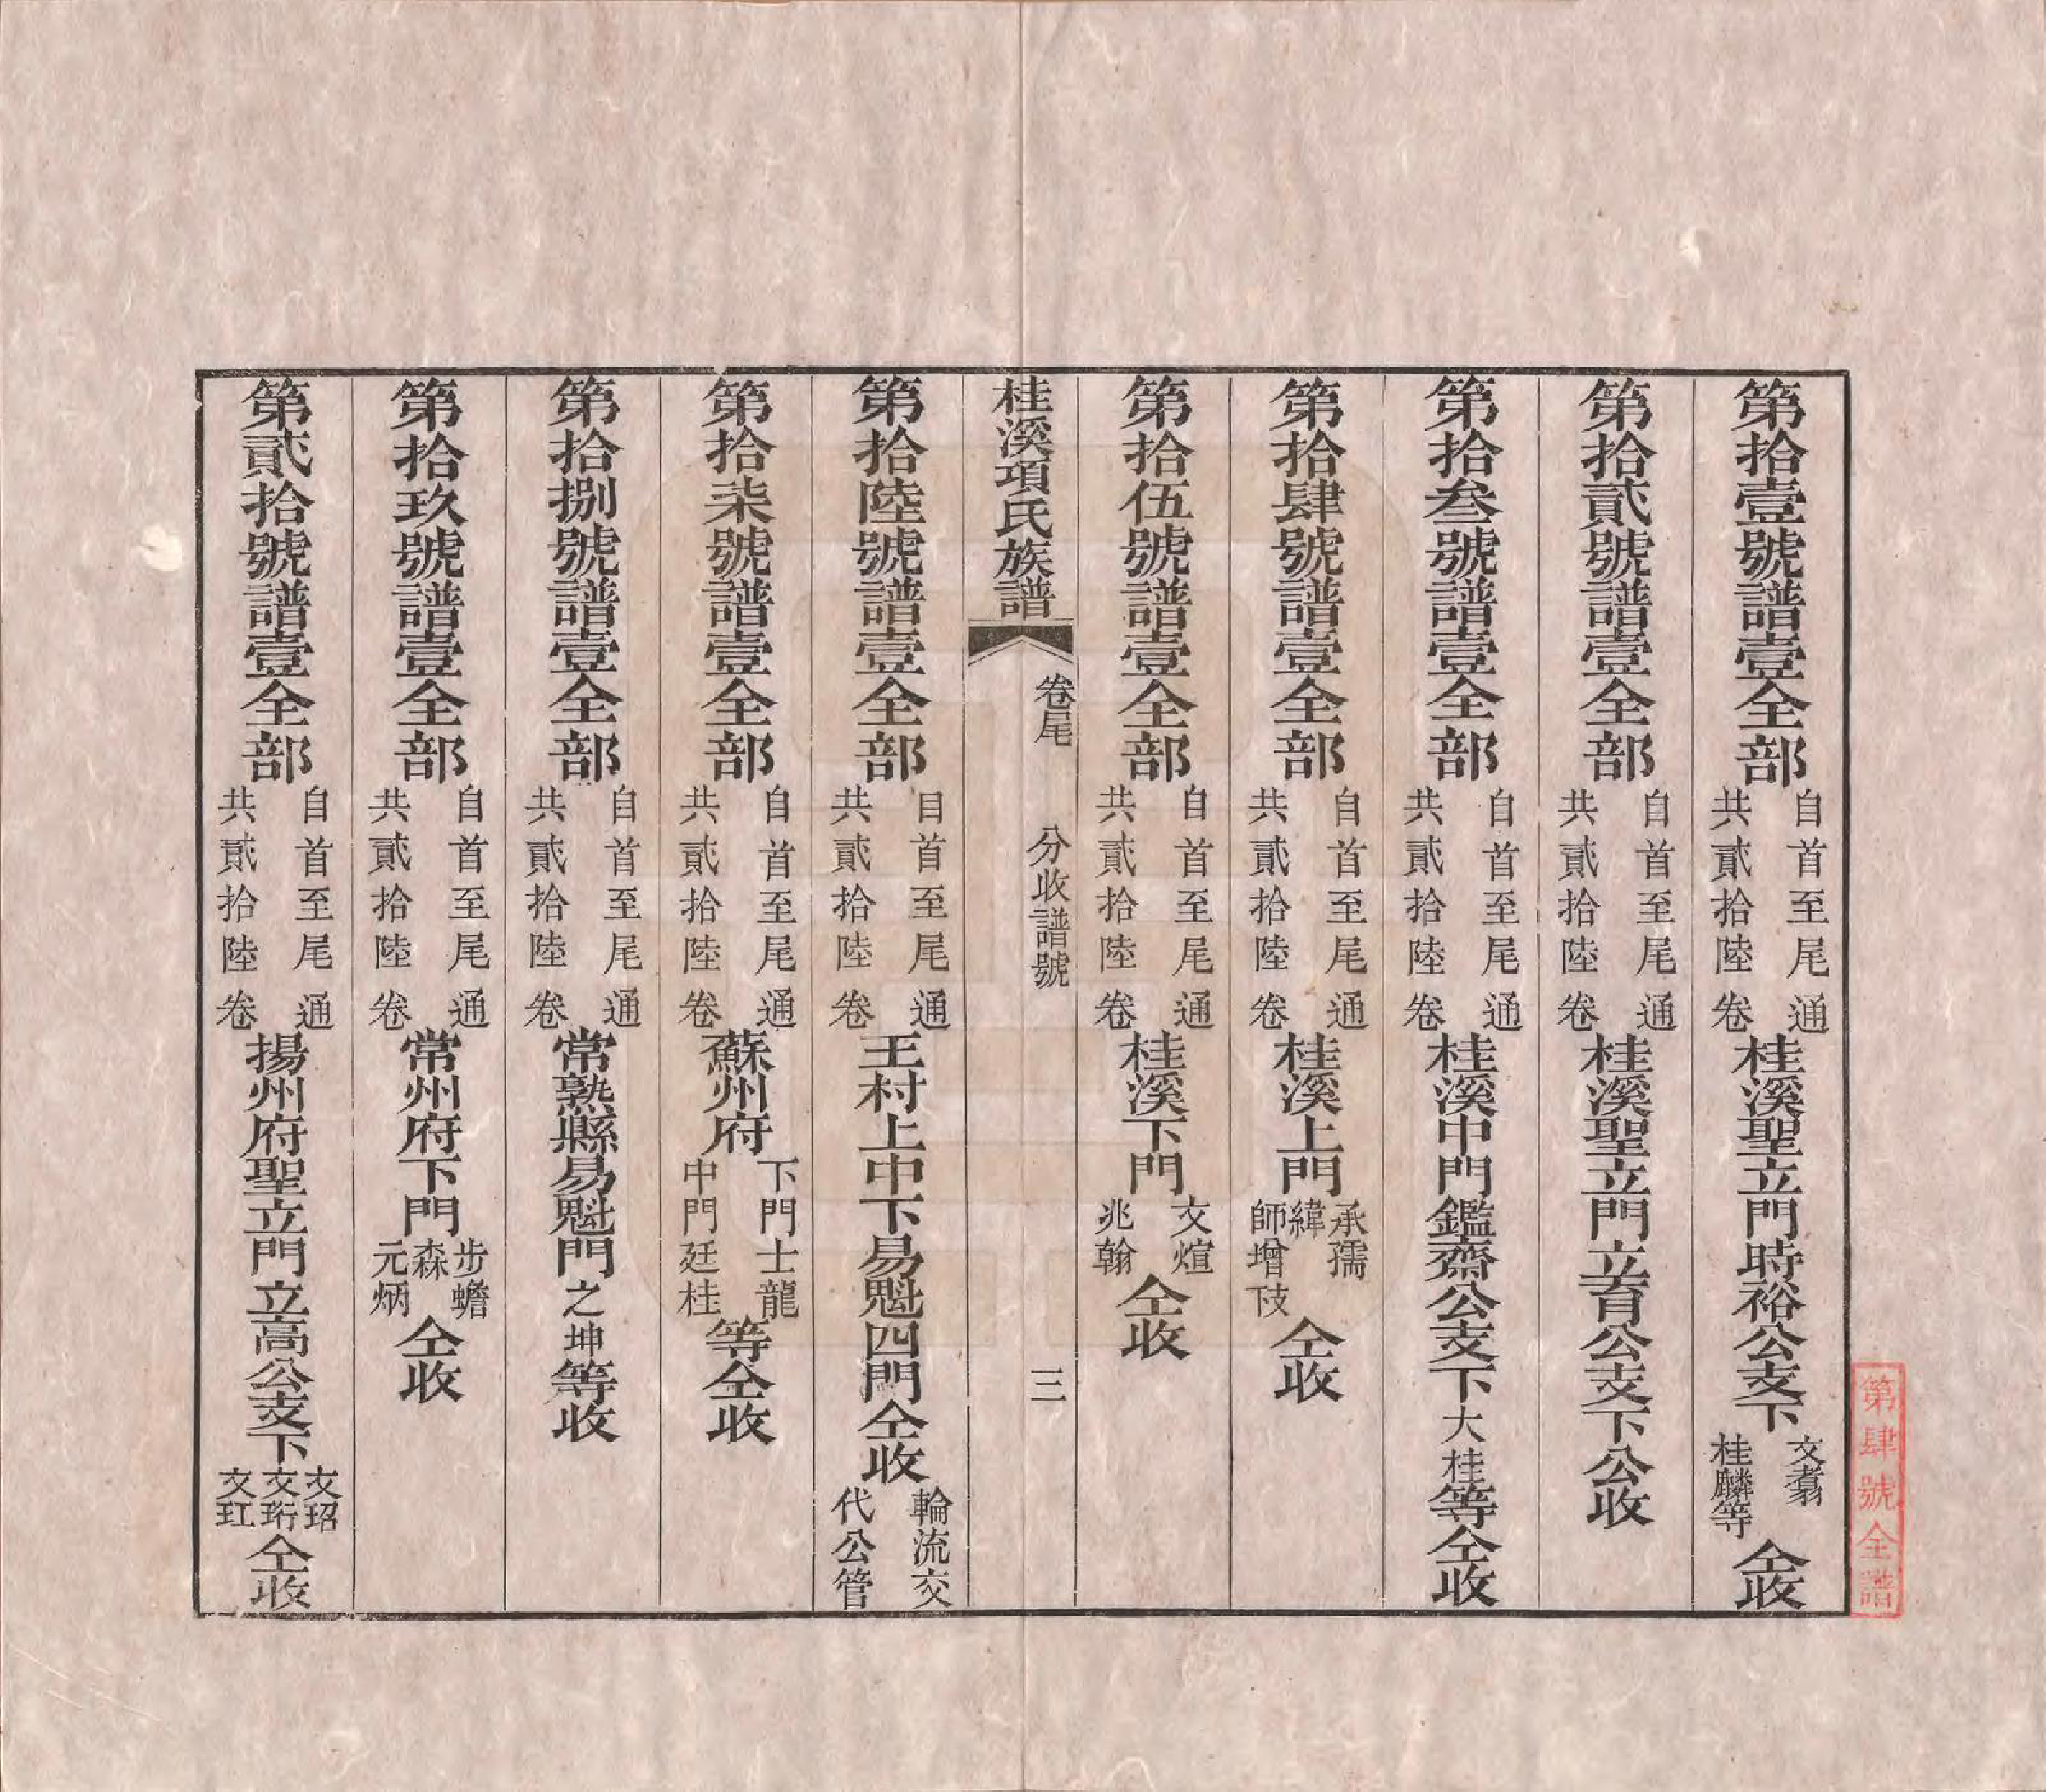 第拾壹號譜壹全部自首至尾通共貳拾陸卷桂溪聖立門時裕公支下文翥桂麟等仝收
第拾貳號譜壹全部自首至尾通共貳拾陸卷桂溪聖立門立育公支下公收
第拾叁號譜壹全部自首至尾通共貳拾陸卷桂溪中門鑑齋公支下大桂等仝收
第拾肆號譜壹全部自首至尾通共貳拾陸卷桂溪上門承孺緯師增下支仝收
第拾伍號譜壹全部自首至尾通共貳拾陸卷桂溪下門文煊兆翰仝收
桂溪項氏族譜 卷尾 分收譜號 三
第拾陸號譜壹全部自首至尾通共貳拾陸卷王村上中下易魁四門仝收輪流交代公管
第拾柒號譜壹全部自首至尾通共貳拾陸卷蘇州府下門士龍中門廷桂等仝收
第拾捌號譜壹全部自首至尾通共貳拾陸卷常熟縣易魁門之坤等收
第拾玖號譜壹全部自首至尾通共貳拾陸卷常州府下門步蟾森元炳仝收
第貳拾號譜壹全部自首至尾通共貳拾陸卷揚州府聖立門立高公支下文玿文珩文玒仝收
第肆號全譜